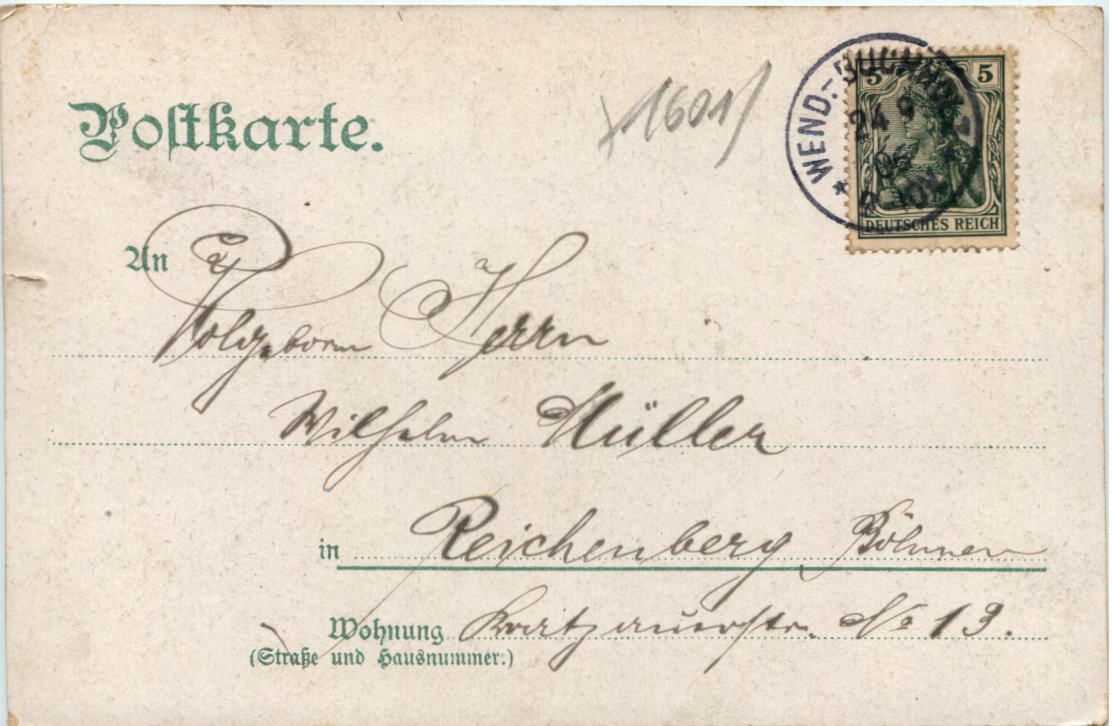 Postkarte.
1601
WEND.-BUCHHOLZ
24 9
06
5 5
DEUTSCHES REICH
An
Herrn
Wilhelm Müller
in Reichenberg Böhmen
Wohnung Kratzauerstr. No 13.
(Straße und Hausnummer.)